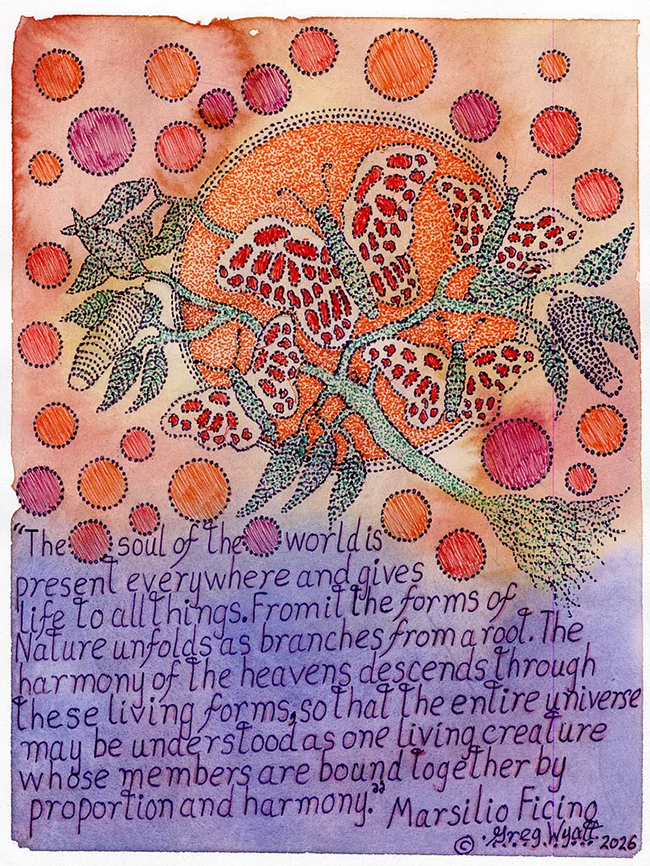 "The soul of the world is
present everywhere and gives
life to all things. From it the forms of
Nature unfolds as branches from a root. The
harmony of the heavens descends through
these living forms, so that the entire universe
may be understood as one living creature
whose members are bound together by
proportion and harmony."
Marsilio Ficino
© Greg Wyatt 2026